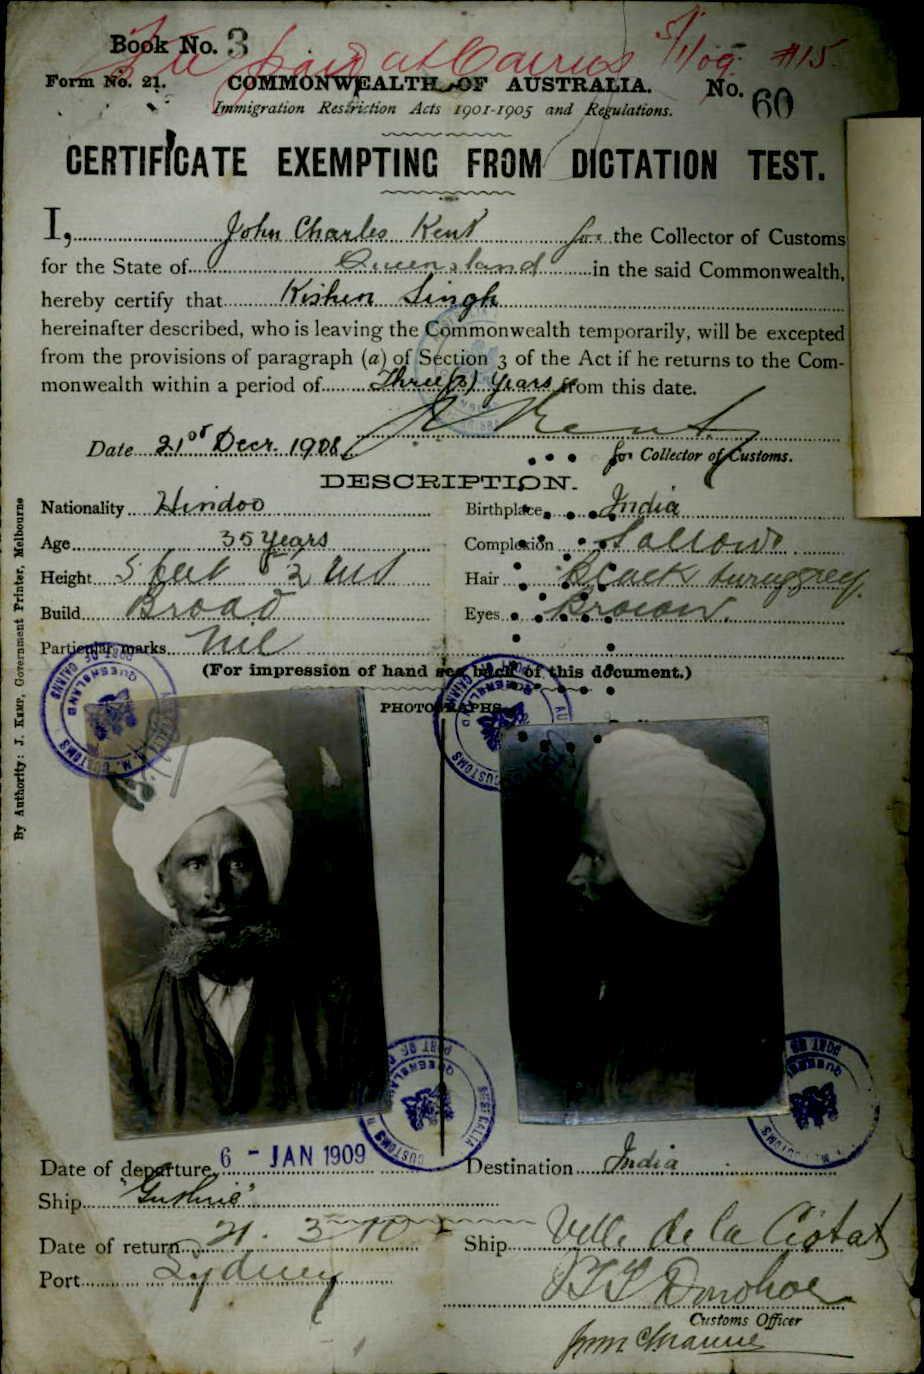 Fee paid at Cairns 5/1/09 #15
Book No. 3
Form No. 21. COMMONWEALTH OF AUSTRALIA. No. 60
Immigration Restriction Acts 1901-1905 and Regulations.
CERTIFICATE EXEMPTING FROM DICTATION TEST.
I, John Charles Kent for the Collector of Customs
for the State of Queensland in the said Commonwealth,
hereby certify that Kishen Singh
hereinafter described, who is leaving the Commonwealth temporarily, will be excepted
from the provisions of paragraph (a) of Section 3 of the Act if he returns to the Com-
monwealth within a period of Three(3) years from this date.
J C Kent
Date 21st Decr. 1908 for Collector of Customs.
DESCRIPTION.
Nationality Hindoo Birthplace India
Age 35 years Complexion Sallow
Height 5 feet 2 ins Hair Black turng grey
Build Broad Eyes Brown.
Particular marks Nil
(For impression of hand see back of this document.)
PHOTOGRAPHS
Date of departure 6 - JAN 1909 Destination India
Ship "Guthrie"
Date of return 21. 3. 10 Ship Ville de la Ciotat
Port Sydney Donohoe
Customs Officer
By Authority: J. Kemp, Government Printer, Melbourne